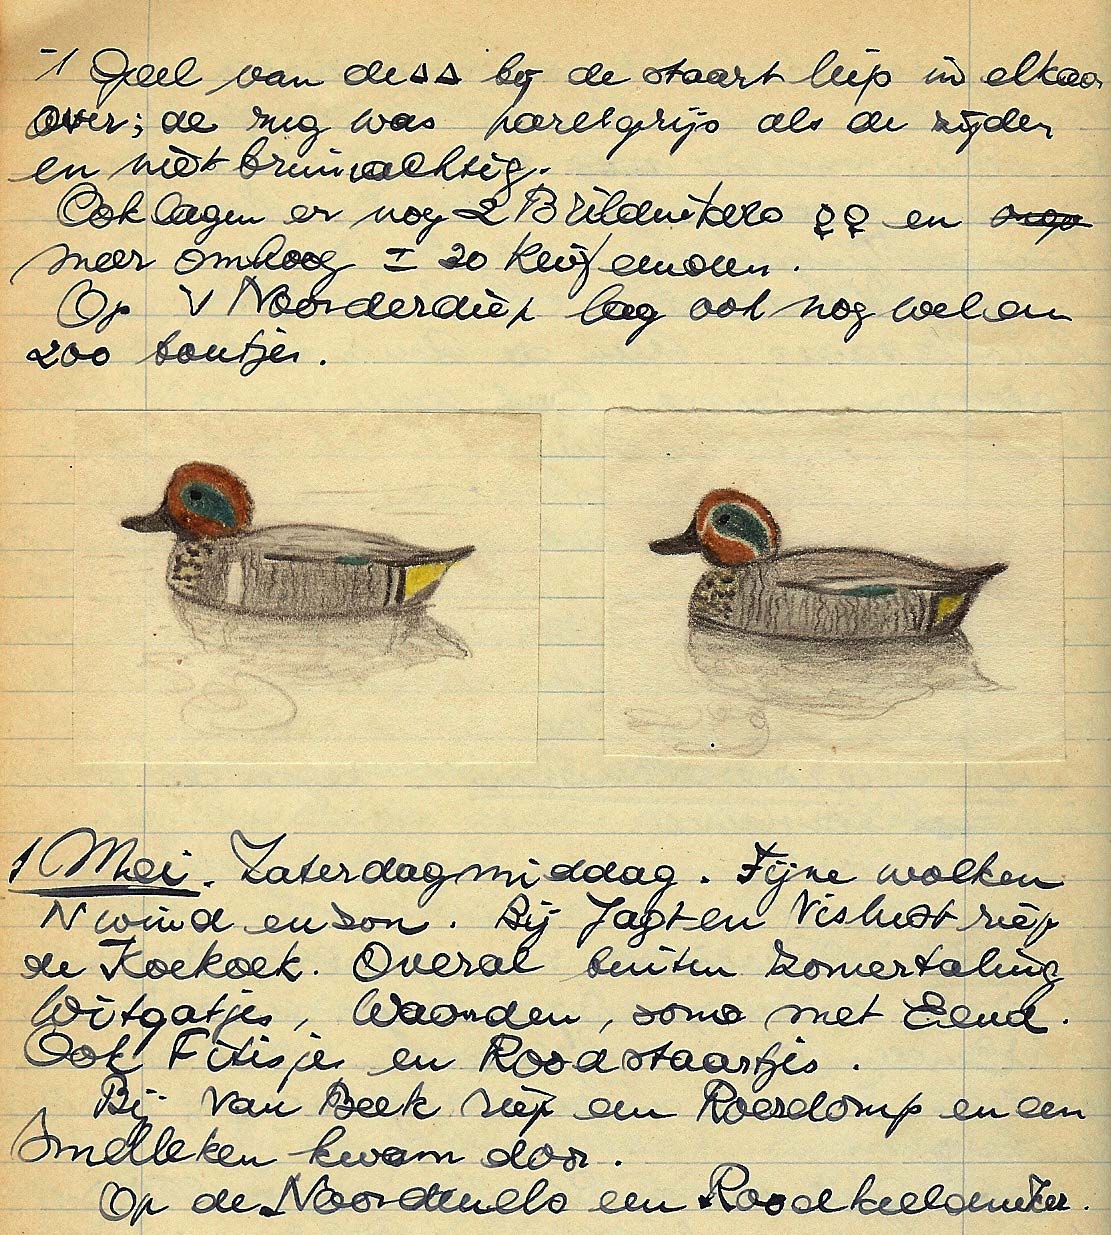 1 Geel van de ΔΔ bij de staart liep in elkaar
over; de rug was parelgrijs als de zijden
en niet bruinachtig.
Ook lagen er nog 2 Brilduikers ♀♀ en
meer omhoog ± 20 Kuifeenden.
Op 't Noorderdiep lag ook nog wel een
200 tontjes.
1 Mei. Zaterdagmiddag. Fijne wolken
N wind en zon. Bij Jagt en Vislust riep
de Koekoek. Overal buiten zomertaling
Witgatjes, Woerden, soms met Eend.
Ook Fitisje en Roodstaartjes.
Bij van Beek riep een Roerdomp en een
Smelleken kwam door.
Op de een Roodkeelduiker.